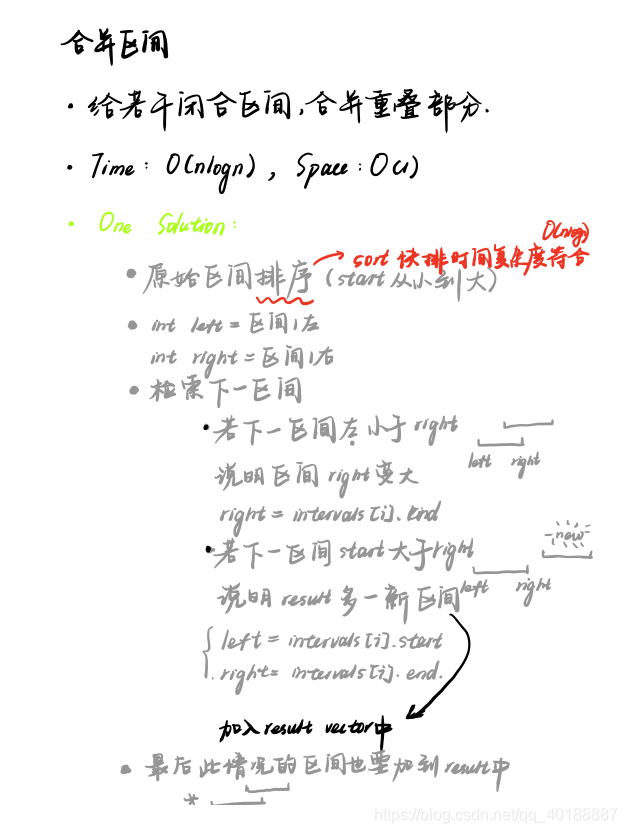 合并区间
· 给若干闭合区间,合并重叠部分.
· Time: O(nlogn), Space: O(1)
· One Solution:
O(nlogn)
→ sort 快排时间复杂度符合
• 原始区间排序 (start从小到大)
• int left = 区间1左
int right = 区间1右
• 检索下一区间
• 若下一区间左小于right
left right
说明区间right变大
right = intervals[i].end
new
• 若下一区间start大于right
left right
说明result多一新区间
{ left = intervals[i].start
right = intervals[i].end.
加入result vector中
• 最后此情况的区间也要加到result中
*
https://blog.csdn.net/qq_40188887